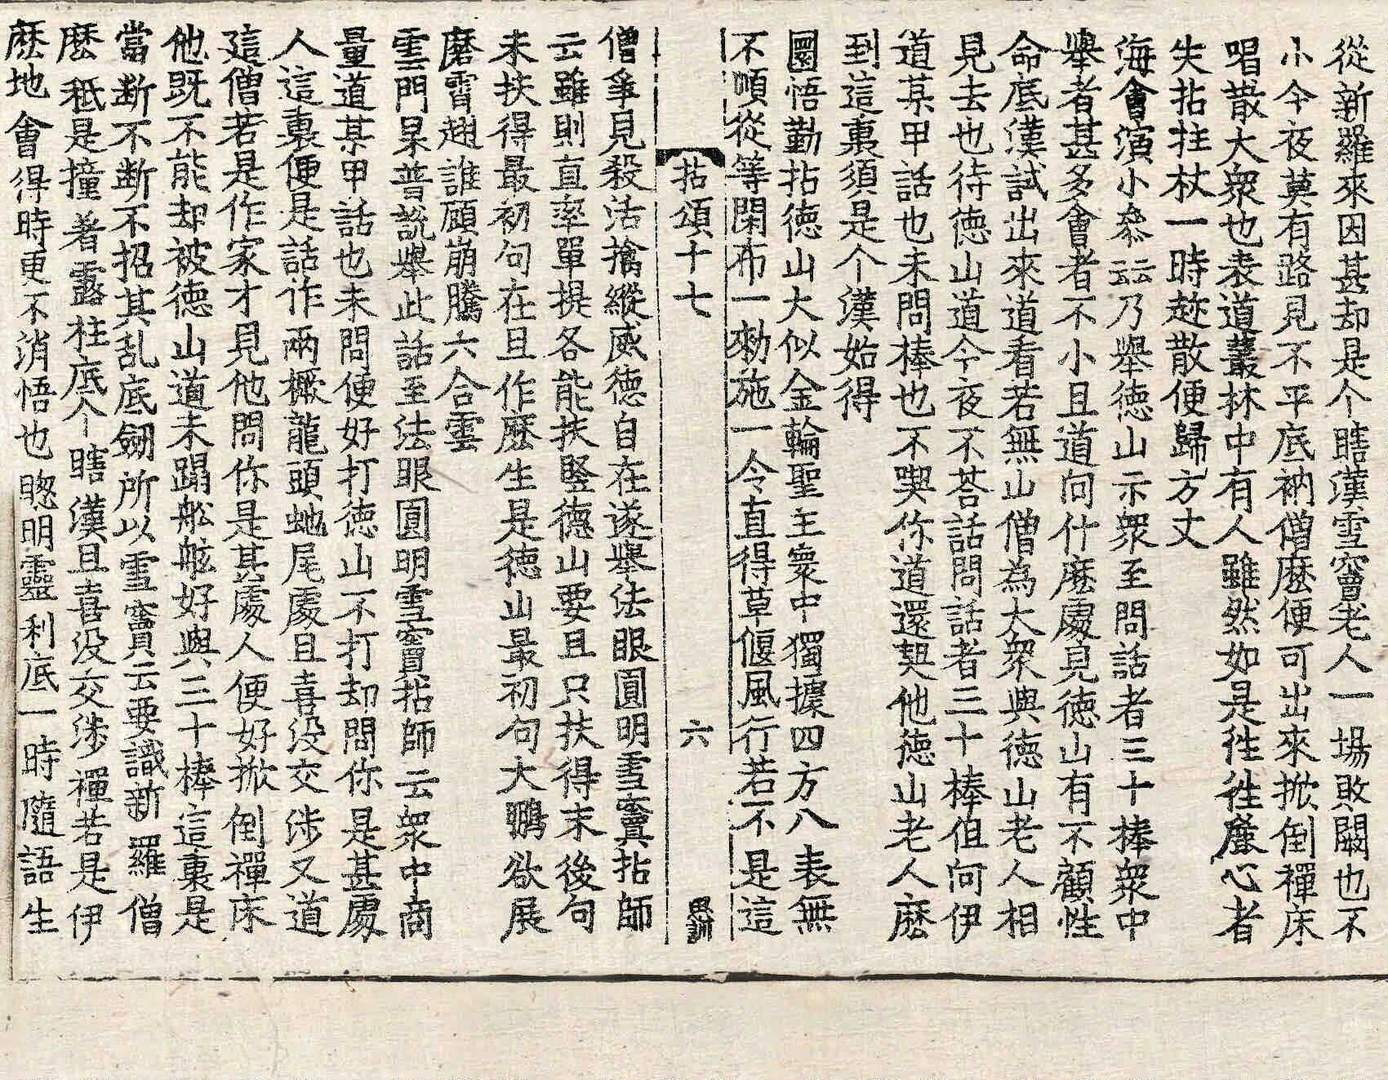 從新羅來因甚却是个瞎漢雪竇老人一場敗闕也不
小今夜莫有路見不平底衲僧麽便可出來掀倒禪床
唱散大衆也表道叢林中有人雖然如是徃徃蹉心者
失拈拄杖一時趂散便歸方丈
海會演小叅云云乃舉徳山示衆至問話者三十捧衆中
舉者甚多會者不小且道向什麽處見徳山有不顧性
命底漢試出來道看若無山僧為大衆與徳山老人相
見去也待徳山道今夜不荅話問話者三十棒但向伊
道某甲話也未問棒也不喫你道還契他徳山老人麽
到這裏須是个漢始得
圜悟勤拈徳山大似金輪聖王寰中獨據四方八表無
不順從等閑布一勑施一令直得草偃風行若不是這
拈頌十七 六 思訓
僧爭見殺活擒縱威徳自在遂舉法眼圓明雪竇拈師
云雖則直率單提各能扶竪徳山要且只扶得末後句
未扶得最初句在且作麽生是徳山最初句大鵬欲展
磨霄翅誰顧崩騰六合雲
雲門杲普說舉此話至法眼圓明雪竇拈師云衆中商
量道某甲話也未問便好打徳山不打却問你是甚處
人這裏便是話作兩橛龍頭虵尾處且喜没交涉又道
這僧若是作家才見他問你是甚處人便好掀倒禪床
他既不能却被徳山道未蹋舩舷好與三十棒這裏是
當断不断不招其乱底劒所以雪竇云要識新羅僧
麽秖是撞著露柱底个瞎漢且喜没交涉禪若是伊
麽地會得時更不消悟也聦明靈利底一時隨語生